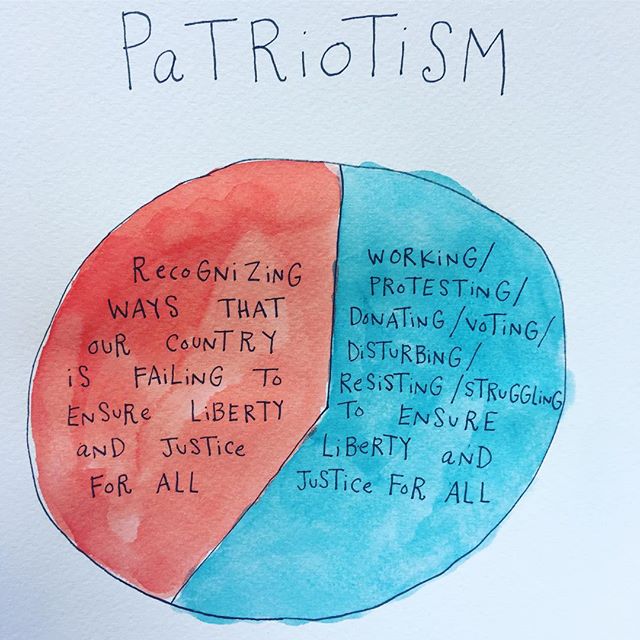 PaTRiOTiSM
RecoGNiZiNG
WAYS THAT
OUR COUNTRY
iS FAiLiNG TO
ENSURe LiBERTY
aND JUSTice
FOR ALL
WORKiNG/
PROTESTiNG/
DONATiNG/VOTiNG/
DiSTURBiNG/
ResiSTiNG/STRUGGLiNG
TO ENSURE
LiBeRTY aND
JUSTiCE FOR ALL